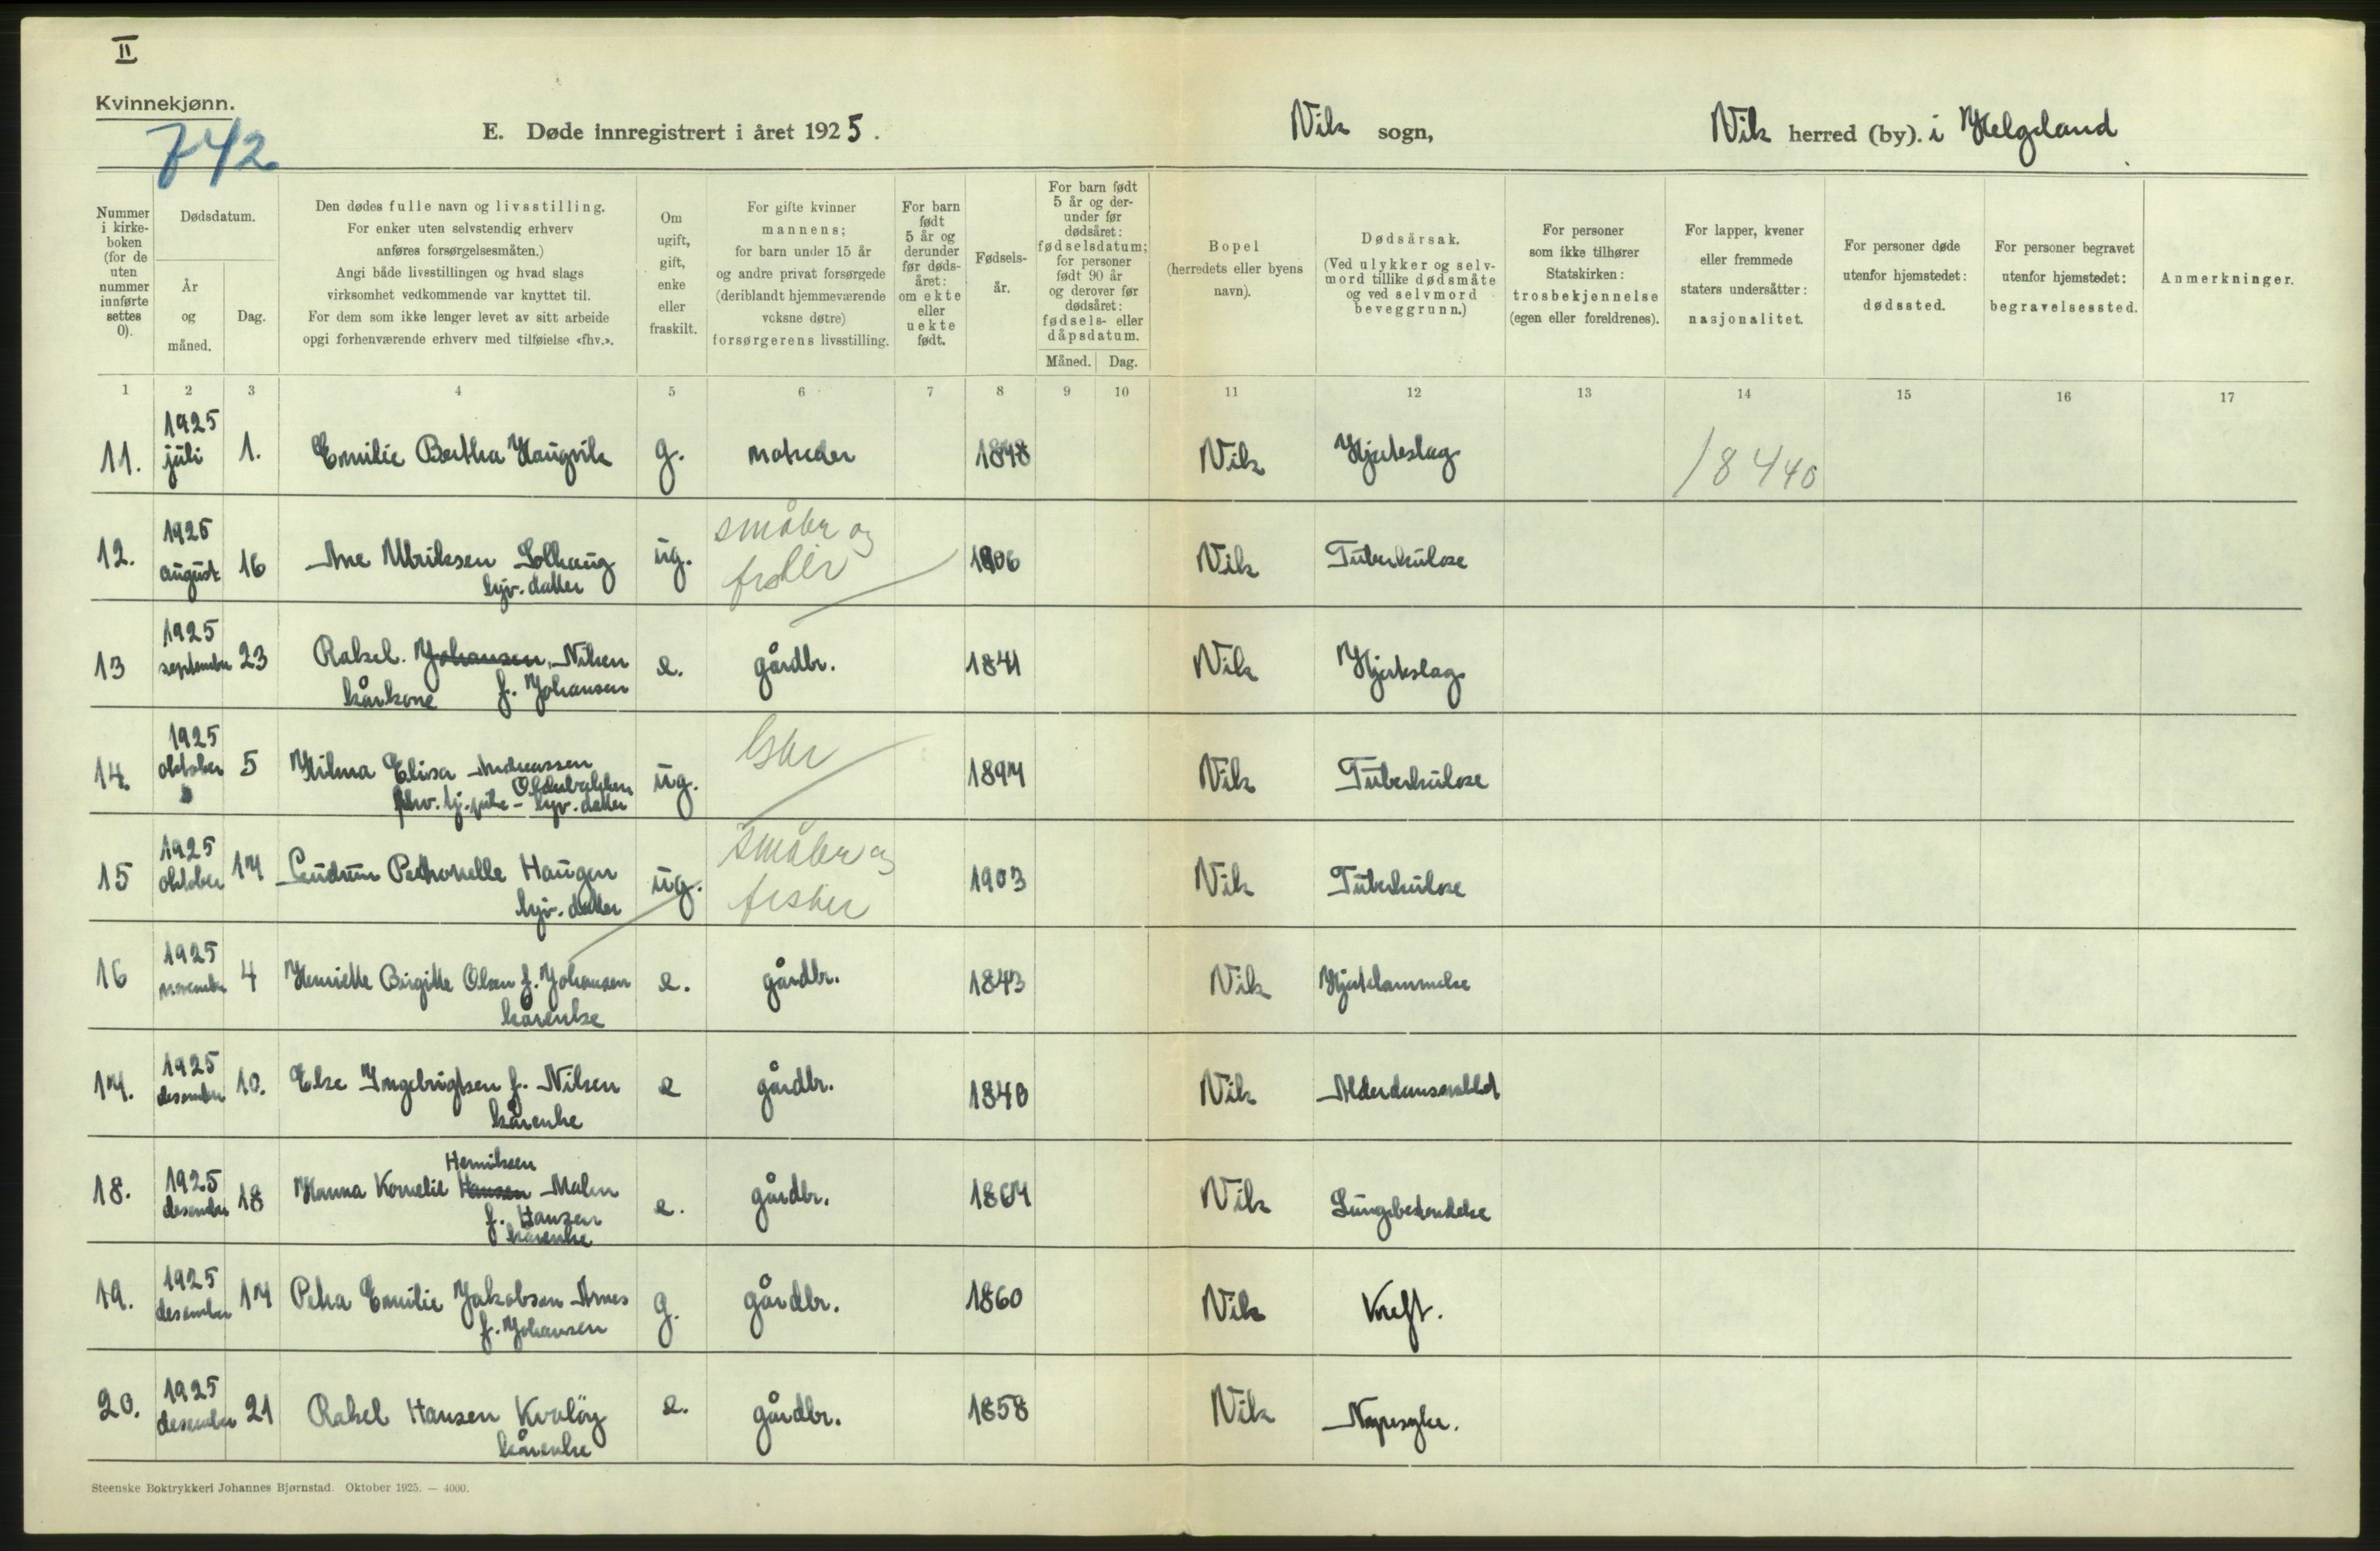 II
Kvinnekjønn.
742
E. Døde innregistrert i året 1925.
Vik sogn,
Vik herred (by). i Helgeland
Nummer i kirke-boken (for de uten nummer innførte settes 0).
Dødsdatum.
År og måned.
Dag.
Den dødes fulle navn og livsstilling.
For enker uten selvstendig erhverv
anføres forsørgelsesmåten.)
Angi både livsstillingen og hvad slags
virksomhet vedkommende var knyttet til.
For dem som ikke lenger levet av sitt arbeide
opgi forhenværende erhverv med tilføielse «fhv.».
Om ugift, gift, enke eller fraskilt.
For gifte kvinner
mannens;
for barn under 15 år
og andre privat forsørgede
(deriblandt hjemmeværende
voksne døtre)
forsørgerens livsstilling.
For barn født 5 år og derunder før døds-året: om ekte eller uekte født.
Fødsels-år.
For barn født 5 år og der-under før dødsåret: fødselsdatum; for personer født 90 år og derover før dødsåret: fødsels- eller dåpsdatum.
Måned.
Dag.
Bopel
(herredets eller byens
navn).
Dødsårsak.
(Ved ulykker og selv-
mord tillike dødsmåte
og ved selvmord
beveggrunn.)
For personer
som ikke tilhører
Statskirken:
trosbekjennelse
(egen eller foreldrenes).
For lapper, kvener
eller fremmede
staters undersåtter:
nasjonalitet.
For personer døde
utenfor hjemstedet:
dødssted.
For personer begravet
utenfor hjemstedet:
begravelsessted.
Anmerkninger.
1 2 3 4 5 6 7 8 9 10 11 12 13 14 15 16 17
11. 1925 juli 1. Emilie Bertha Haugvik g. 1848 Vik Hjerteslag 18440
12. 1925 august 16 Ane Ulriksen Solhaug ug. småbr og fisker 1906 Vik Tuberkulose
hjv. datter
13 1925 september 23 Rakel Johansen Nilsen e. gårdbr. 1841 Vik Hjerteslag
kårkone f. Johansen
14. 1925 oktober 5 Hilma Elisa Andreassen ug. Gbr 1897 Vik Tuberkulose
Olderbakken
fhv. tj.pike - hjv. datter
15 1925 oktober 17 Gudrun Petronelle Haugen ug. småbr og fisker 1903 Vik Tuberkulose
hjv. datter
16 1925 november 4 Henriette Birgitte Olsen f. Johansen e. gårdbr. 1843 Vik Hjertelammelse
kårenke
17. 1925 desember 10. Else Ingebrigtsen f. Nilsen e gårdbr. 1840 Vik Alderdomssvakhet
kårenke
18. 1925 desember 18 Hanna Kornelie Hansen Henriksen Malm e. gårdbr. 1867 Vik Lungebetendelse
f. Hansen
kårenke
19. 1925 desember 17 Petra Emilie Jakobsen Arnes g. gårdbr. 1860 Vik Kreft.
f. Johansen
20. 1925 desember 21 Rakel Hansen Kvaløy e. gårdbr. 1858 Vik Nyresyke.
kårenke
Steenske Boktrykkeri Johannes Bjørnstad. Oktober 1925. — 4000.